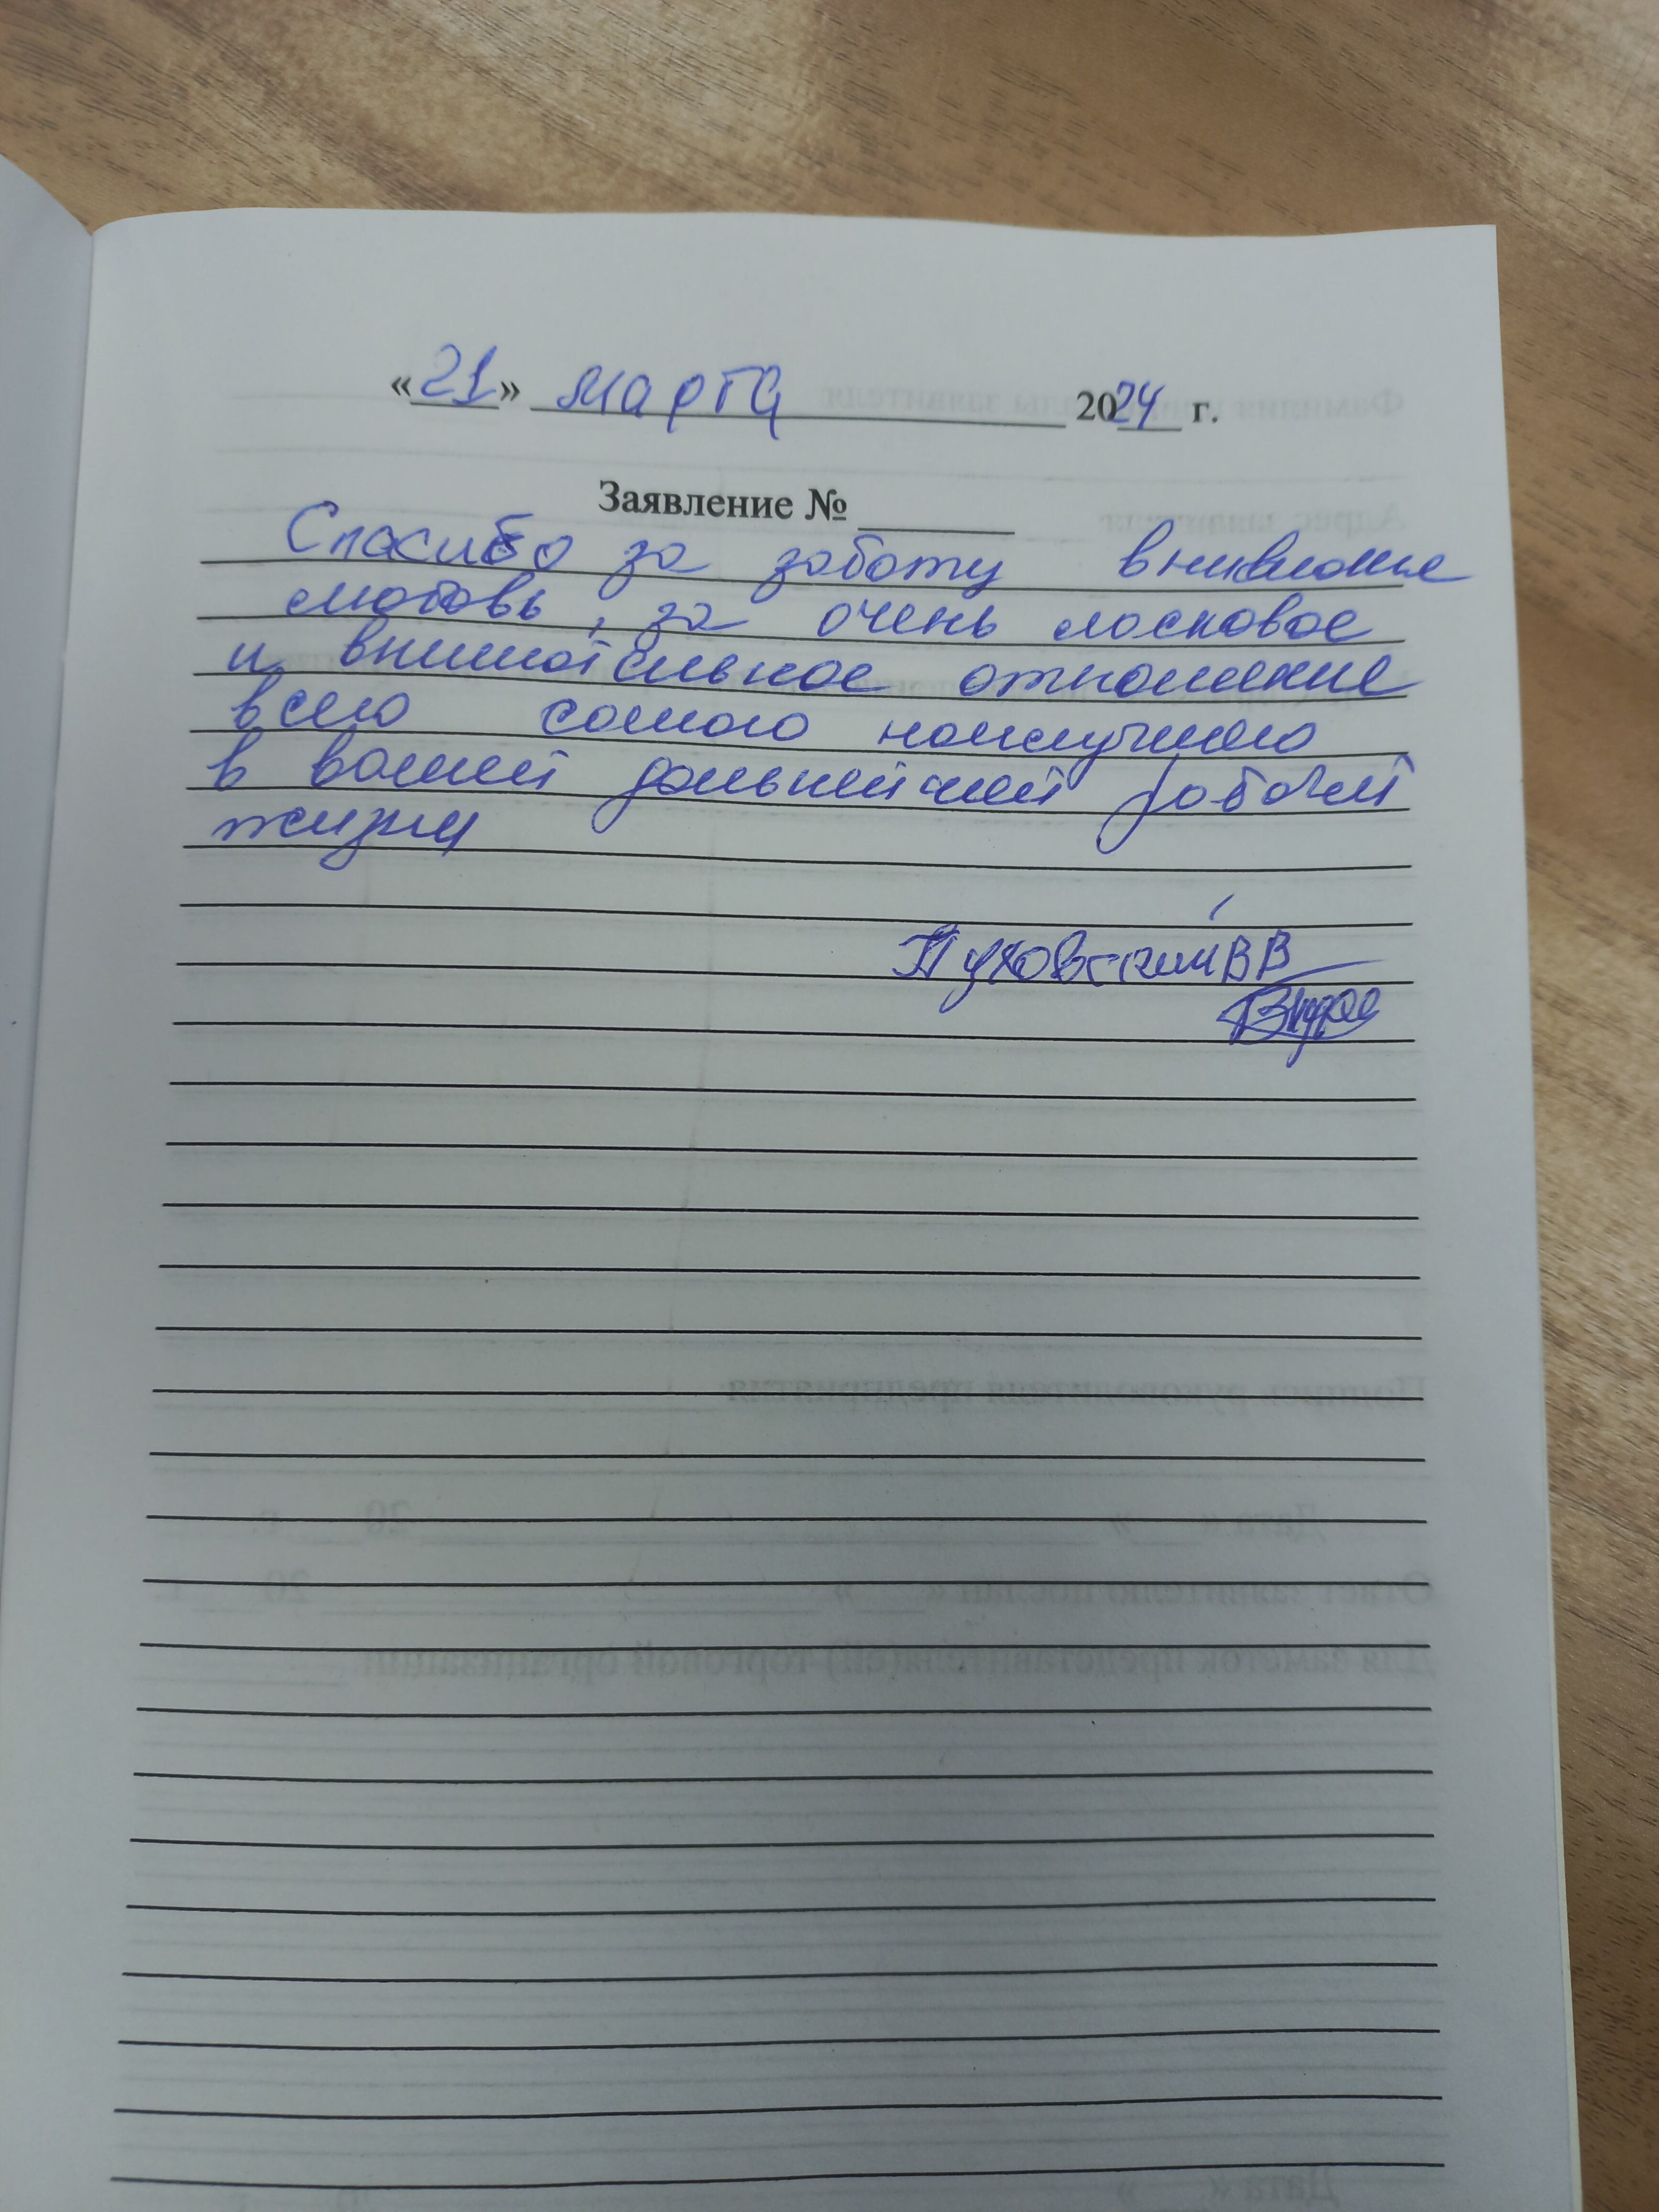 «21» марта 2024 г.
Заявление №
Спасибо за заботу внимание
любовь, за очень ласковое
и внимательное отношение
всего самого наилучшего
в вашей дальнейшей рабочей
жизни
Пуховский ВВ